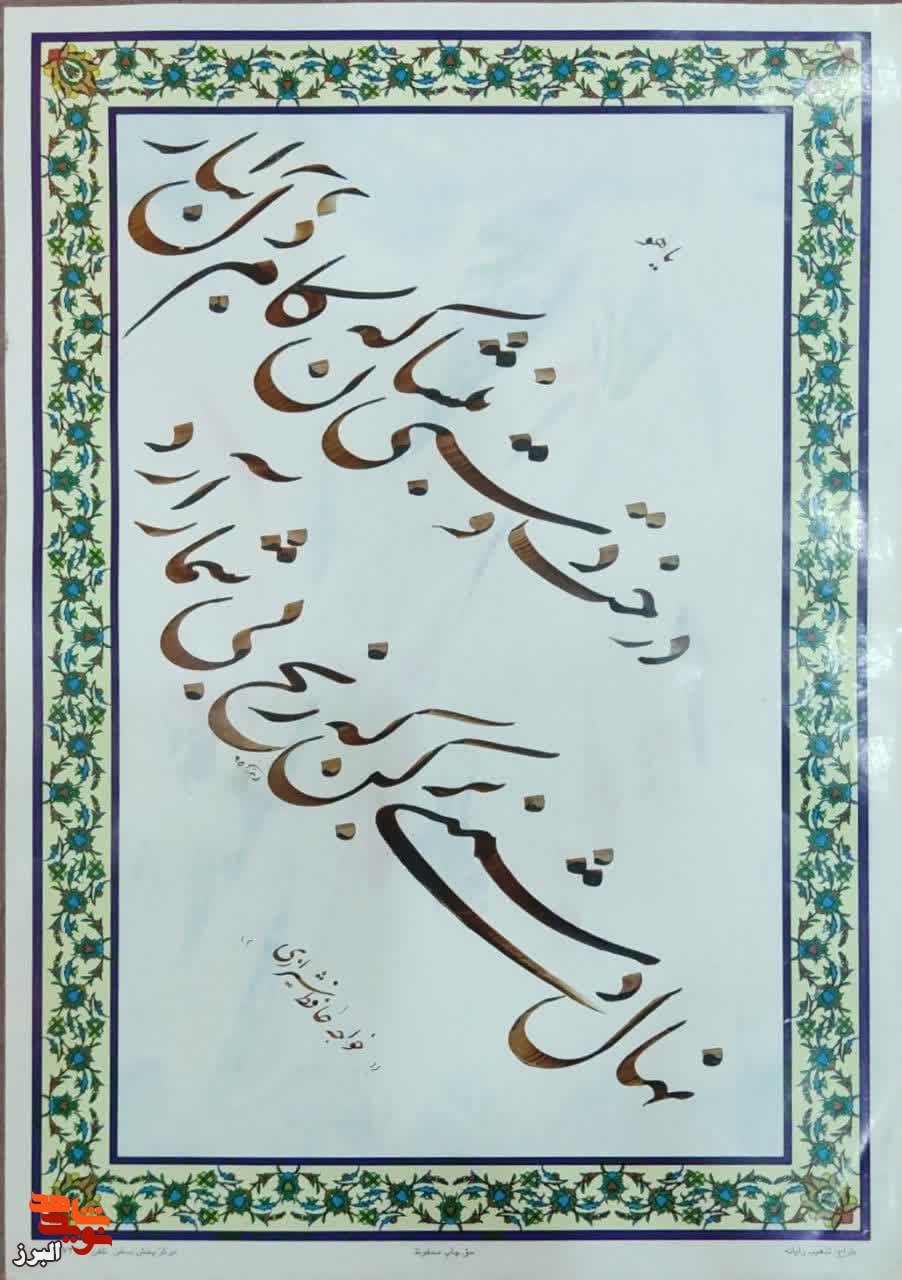 یاهو
درخت دوستی بنشان که کام دل ببار آرد
نهال دشمنی برکن که رنج بی شمار آرد
خواجه حافظ شیرازی
حق چاپ محفوظ
طراح: تذهیب رایانه
مرکز پخش
نوید شاهد
البرز